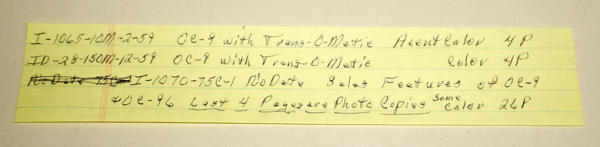 I-1065-10M-2-59 OC-9 with Trans-O-Matic Accent Color 4P
ID-28-150M-12-59 OC-9 with Trans-O-Matic Color 4P
No Date 75C I-1070-75C-1 No Date Sales Features of OC-9
& OC-96 Last 4 Pages are Photo Copies Some Color 26P